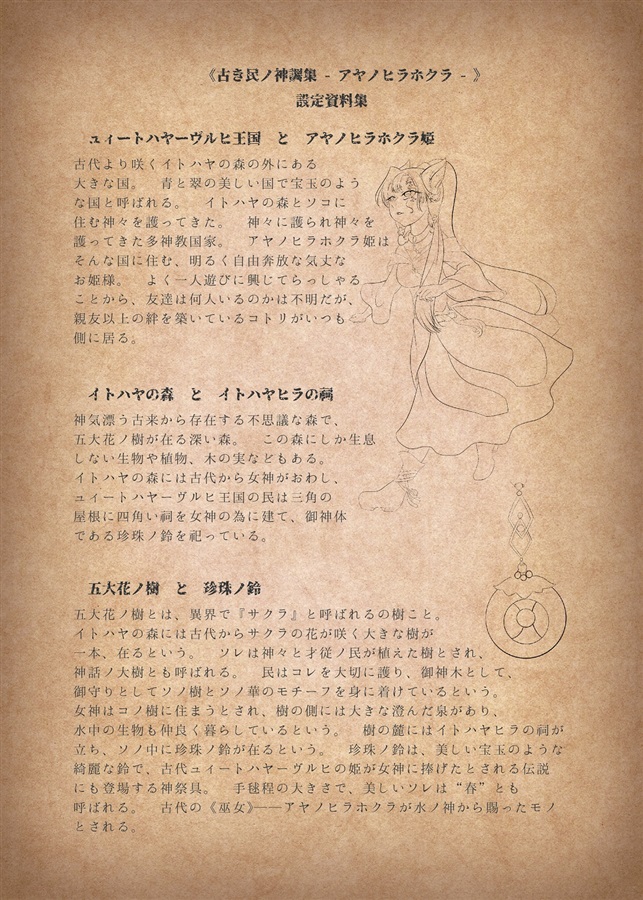 《古き民ノ神謌集 - アヤノヒラホクラ - 》
設定資料集
ユィートハヤーヴルヒ王国　と　アヤノヒラホクラ姫
古代より咲くイトハヤの森の外にある
大きな国。　青と翠の美しい国で宝玉のよう
な国と呼ばれる。　イトハヤの森とソコに
住む神々を護ってきた。　神々に護られ神々を
護ってきた多神教国家。　アヤノヒラホクラ姫は
そんな国に住む、明るく自由奔放な気丈な
お姫様。　よく一人遊びに興じてらっしゃる
ことから、友達は何人いるのかは不明だが、
親友以上の絆を築いているコトリがいつも
側に居る。
イトハヤの森　と　イトハヤヒラの祠
神気漂う古来から存在する不思議な森で、
五大花ノ樹が在る深い森。　この森にしか生息
しない生物や植物、木の実などもある。
イトハヤの森には古代から女神がおわし、
ユィートハヤーヴルヒ王国の民は三角の
屋根に四角い祠を女神の為に建て、御神体
である珍珠ノ鈴を祀っている。
五大花ノ樹　と　珍珠ノ鈴
五大花ノ樹とは、異界で『サクラ』と呼ばれるの樹こと。
イトハヤの森には古代からサクラの花が咲く大きな樹が
一本、在るという。　ソレは神々と才従ノ民が植えた樹とされ、
神話ノ大樹とも呼ばれる。　民はコレを大切に護り、御神木として、
御守りとしてソノ樹とソノ華のモチーフを身に着けているという。
女神はコノ樹に住まうとされ、樹の側には大きな澄んだ泉があり、
水中の生物も仲良く暮らしているという。　樹の麓にはイトハヤヒラの祠が
立ち、ソノ中に珍珠ノ鈴が在るという。　珍珠ノ鈴は、美しい宝玉のような
綺麗な鈴で、古代ユィートハヤーヴルヒの姫が女神に捧げたとされる伝説
にも登場する神祭具。　手毬程の大きさで、美しいソレは“春”とも
呼ばれる。　古代の《巫女》──アヤノヒラホクラが水ノ神から賜ったモノ
とされる。